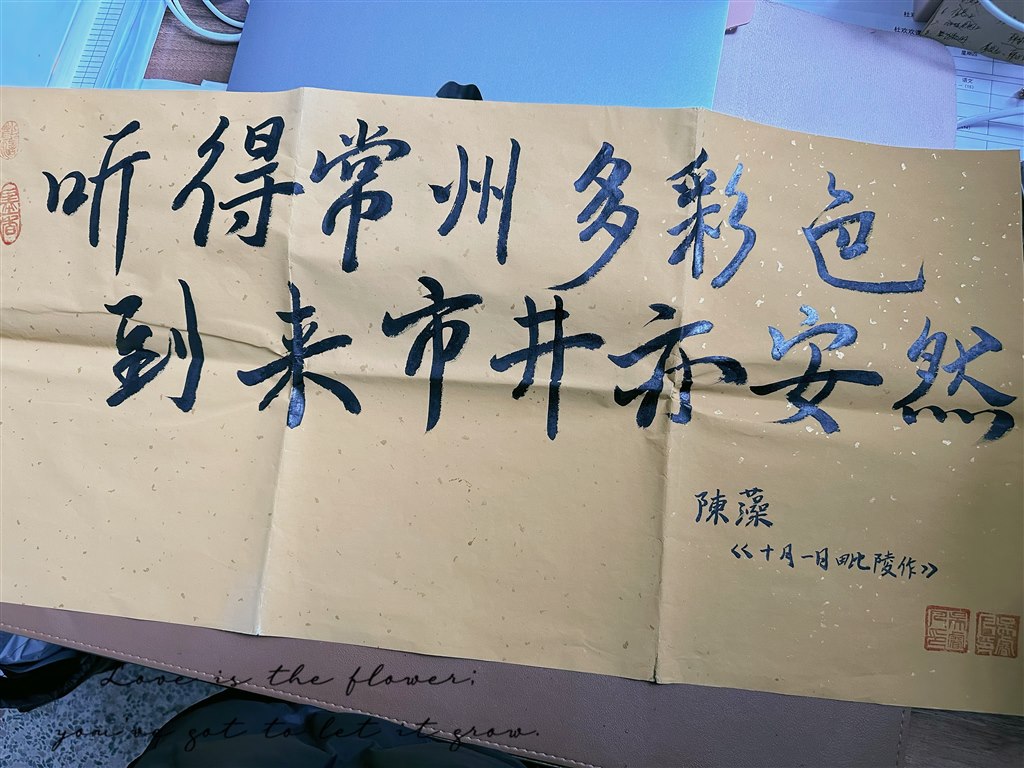 听得常州多彩色
到来市井亦安然
陳藻
《十月一日毗陵作》
Love is the flower;
you've got to let it grow.